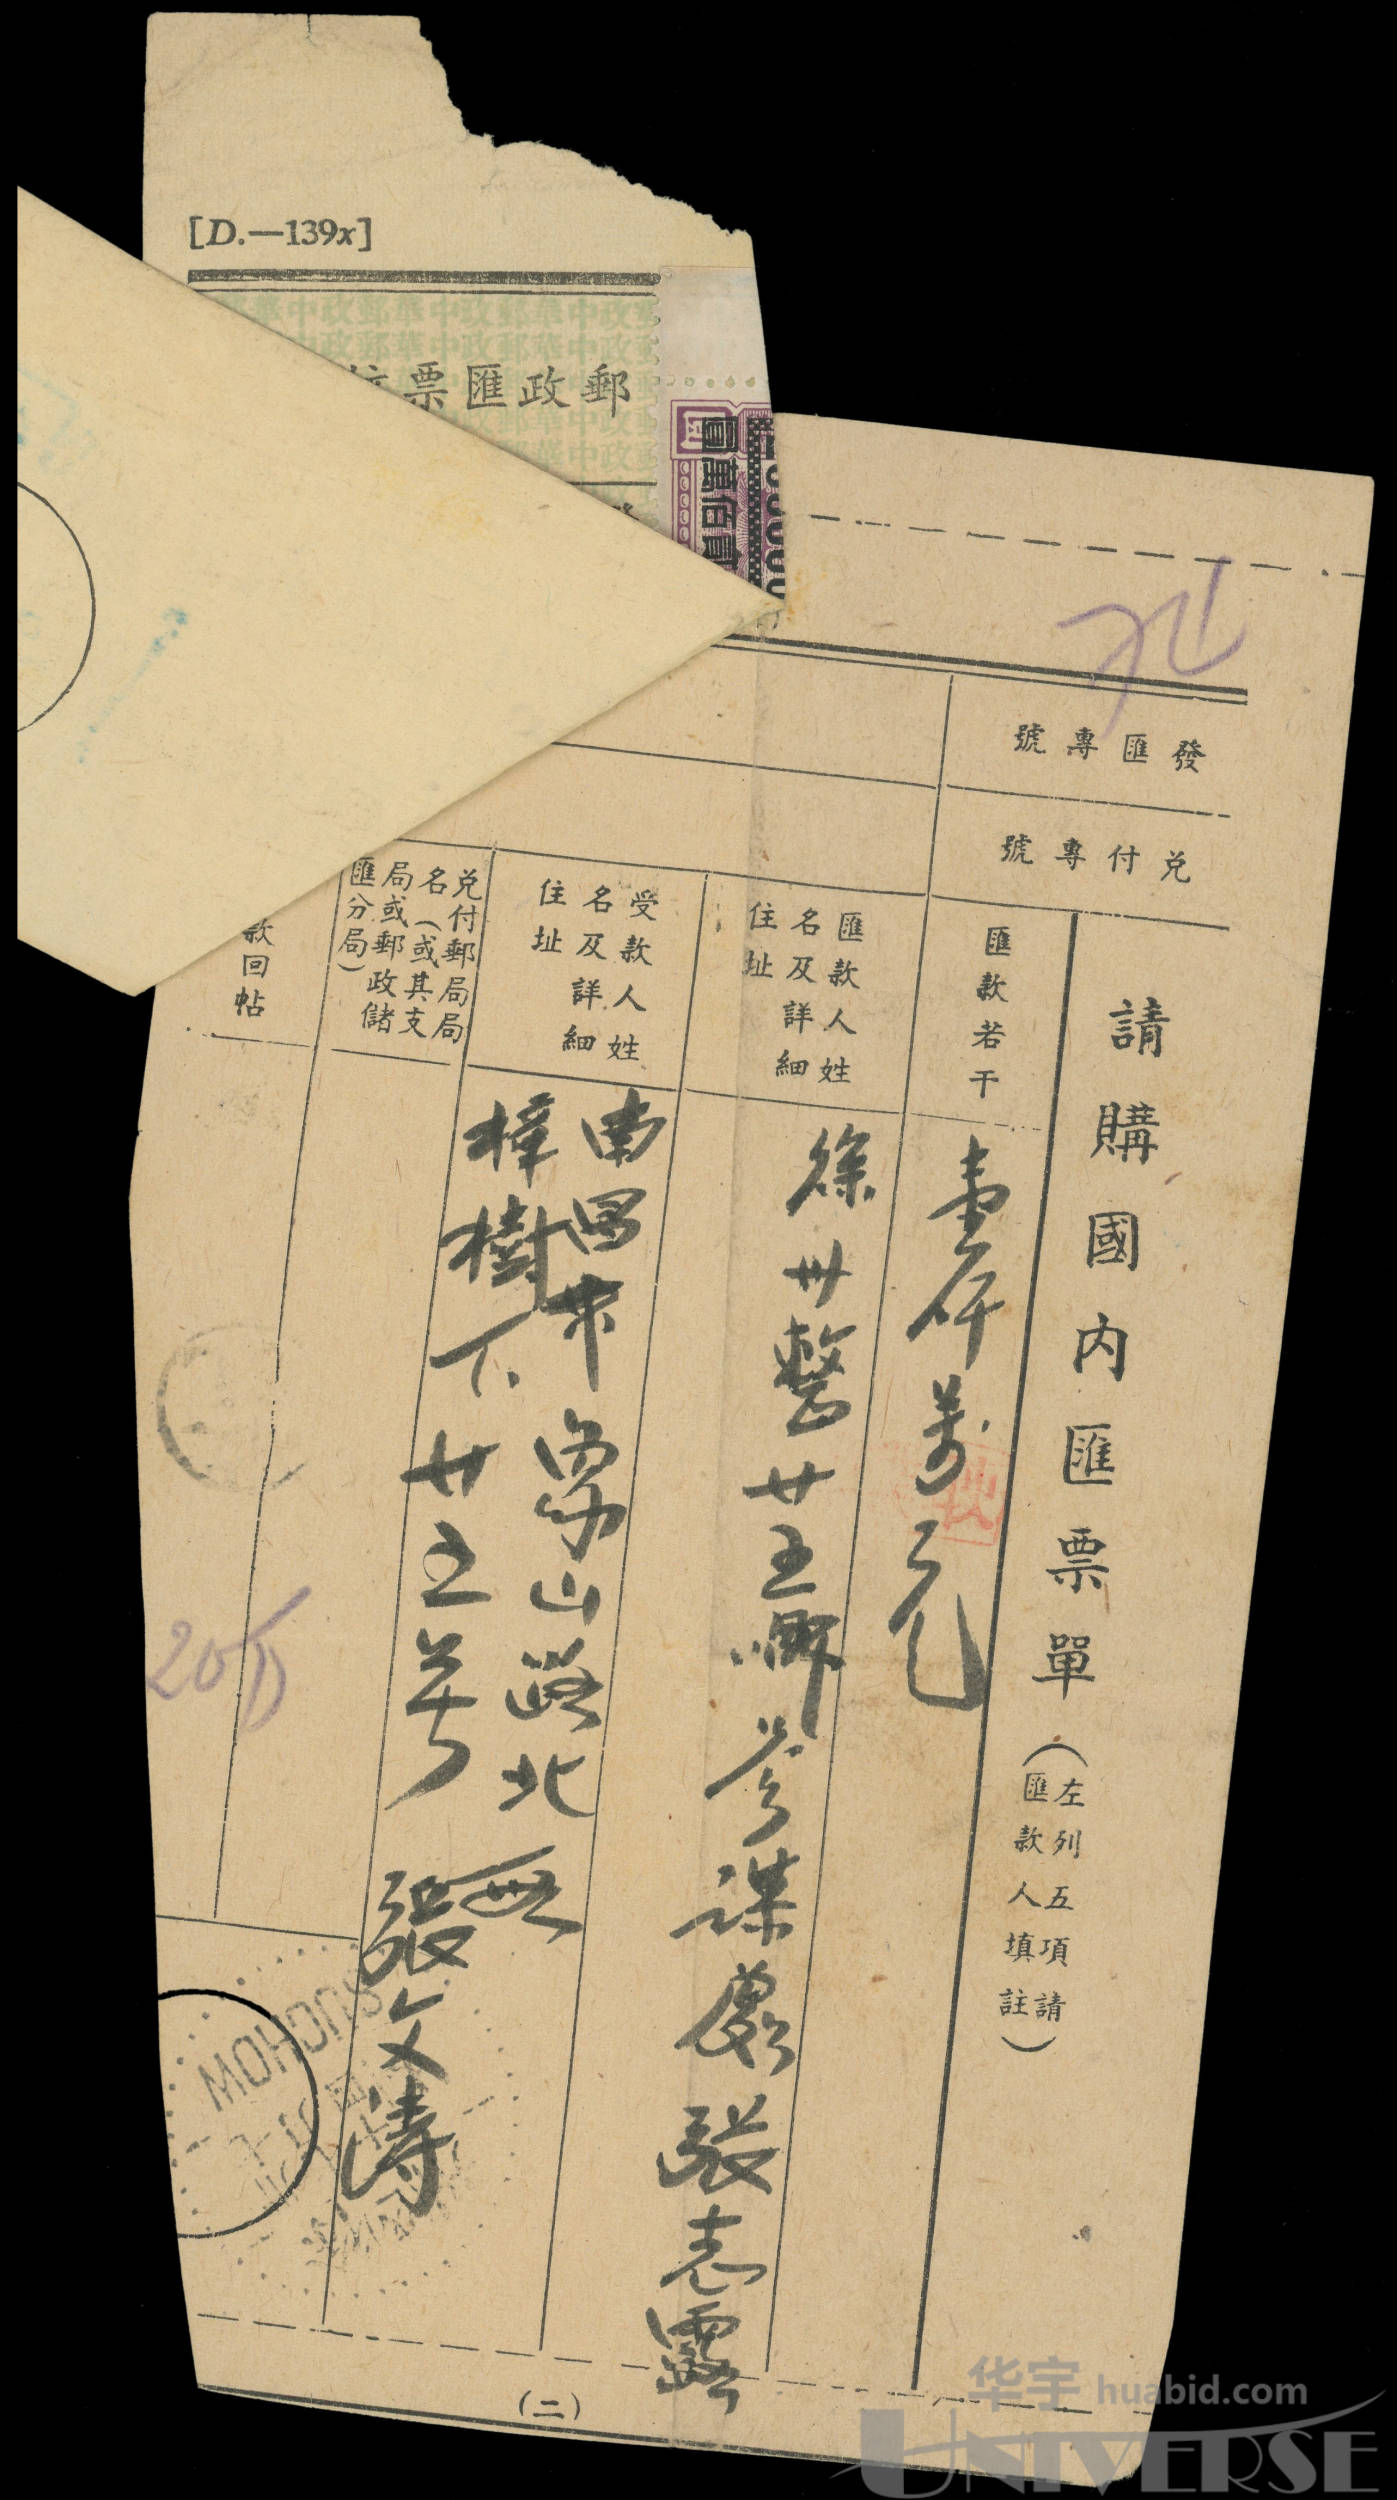 [D.—139x]
郵政匯票
圓萬佰貳
發匯專號
兌付專號
請購國內匯票單
(左列五項請匯款人填註)
匯款若干
壹仟萬元
匯款人姓名及詳細住址
徐州整廿五師參謀處張志露
受款人姓名及詳細住址
南昌市象山路北
樟樹下廿五號 張文濤
兌付郵局局名(或其支局或郵政儲匯分局)
款回帖
20萬
SUCHOW
(二)
华宇 huabid.com
UNIVERSE